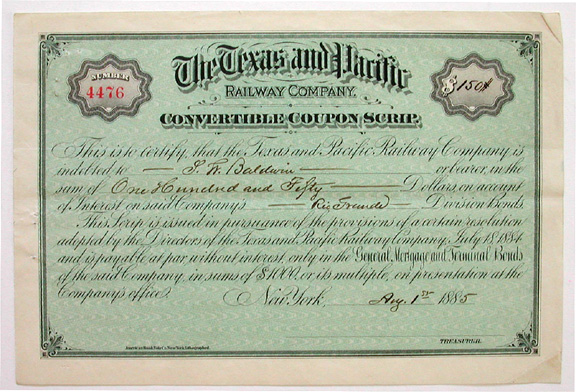 The Texas and Pacific
RAILWAY COMPANY.
CONVERTIBLE COUPON SCRIP.
NUMBER
4476
$150
This is to certify, that the Texas and Pacific Railway Company is
indebted to Baldwin or bearer, in the
sum of One Hundred and Fifty Dollars, on account
of Interest on said Company's Rio Grande Division Bonds.
This Scrip is issued in pursuance of the provisions of a certain resolution
adopted by the Directors of the Texas and Pacific Railway Company, July 18, 1884
and is payable at par without interest, only in the General Mortgage and Terminal Bonds
of the said Company, in sums of $1000, or its multiple, on presentation at the
Company's office.
New York, Aug. 1st 1885
TREASURER.